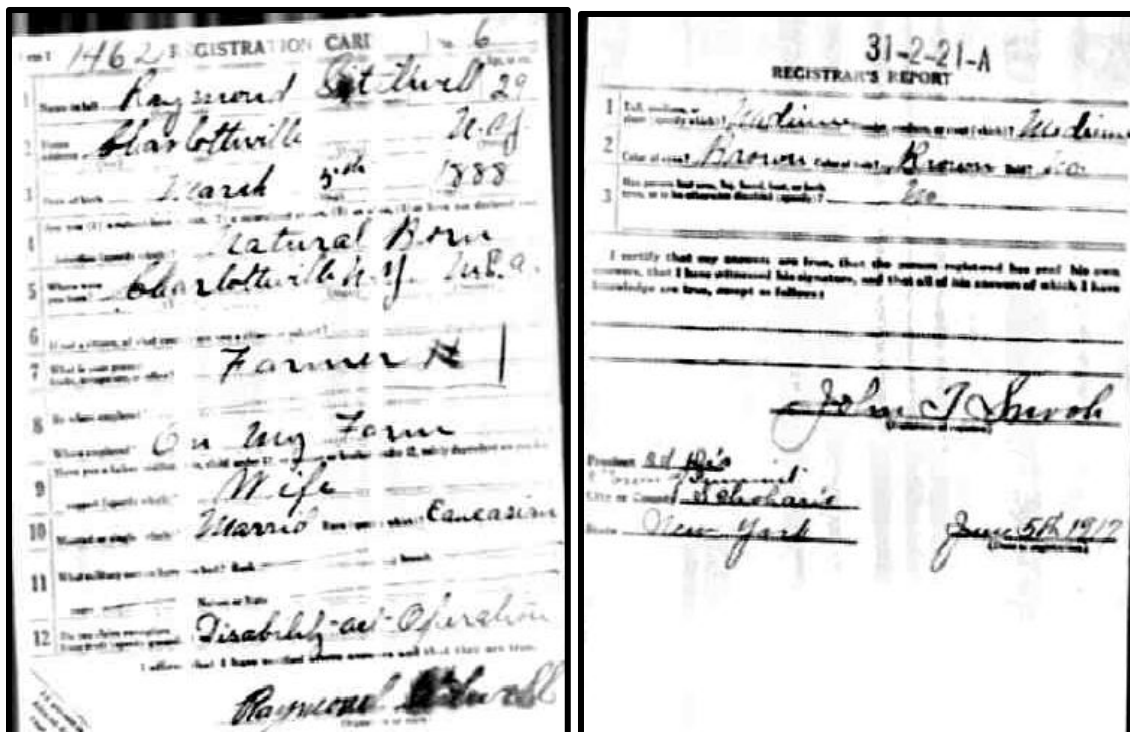 Form 1 1462 REGISTRATION CARD No. 6
1 Name in full Raymond Stilwell 29
2 Home address Charlottville N.Y.
3 Date of birth March 1888
4
Natural Born
5 Where were you born? Charlottville N.Y. U.S.a.
6 If not a citizen, of what country are you a citizen or subject?
7 What is your present trade, occupation, or office? Farmer
8 By whom employed?
Where employed? On My Farm
9
Wife
10 Married or single (which)? Marrid Race (specify which)? Caucasian
11 What military service have you had? Rank branch
years Nation or State
12 Do you claim exemption from draft (specify grounds)? Disability-act-Operation
I affirm that I have verified above answers and that they are true.
Raymond Stilwell
31-2-21-A
REGISTRAR'S REPORT
1 Tall, medium, or short (specify which)? Medium Slender, medium, or stout (which)? Medium
2 Color of eyes? Brown Color of hair? Brown Bald? No
3 Has person lost arm, leg, hand, foot, or both
eyes, or is he otherwise disabled (specify)? No
I certify that my answers are true, that the person registered has read his own
answers, that I have witnessed his signature, and that all of his answers of which I have
knowledge are true, except as follows:
John T
(Signature of registrar)
Precinct 2d Dis
Summit
City or County Schoharie
State New York June 5th 1917
(Date of registration)